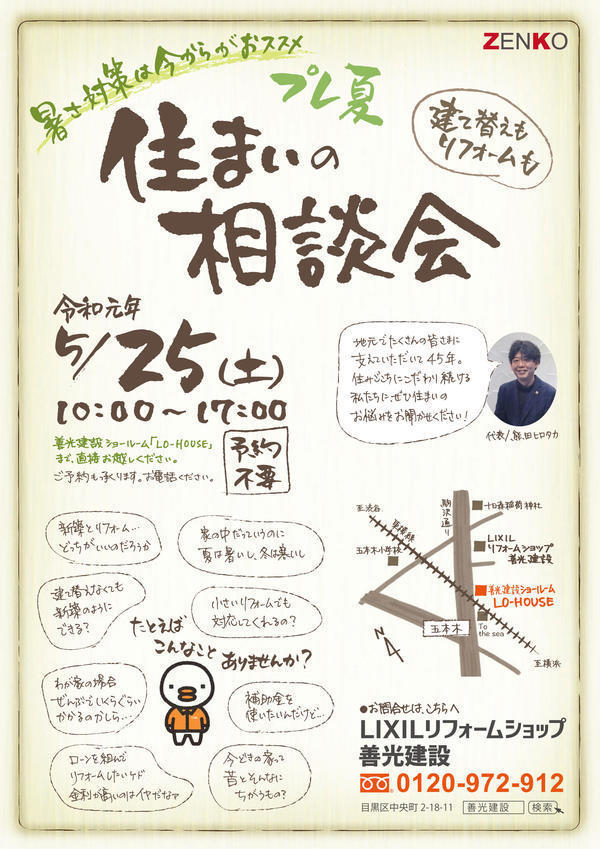 ZENKO
暑さ対策は今からがおススメ
プレ夏
建て替えも
リフォームも
住まいの
相談会
令和元年
5/25(土)
10:00~17:00
善光建設ショールーム「LO-HOUSE」
まで、直接お越しください。
ご予約も承ります。お電話ください。
予約
不要
地元でたくさんの皆さまに
支えていただいて45年。
住みごこちにこだわり続ける
私たちに、ぜひ住まいの
お悩みをお聞かせください!
代表/熊田ヒロタカ
新築とリフォーム…
どっちがいいのだろうか
家の中だっていうのに
夏は暑いし、冬は寒いし
建て替えなくても
新築のように
できる?
小さいリフォームでも
対応してくれるの?
たとえば
こんなこと
ありませんか?
わが家の場合
ぜんぶでいくらぐらい
かかるのかしら…
補助金を
使いたいんだけど…
ローンを組んで
リフォームしたいケド
金利が高いのはイヤだなァ
今どきの家って
昔とそんなに
ちがうもの?
至渋谷
東横線
駒沢通り
十日森稲荷神社
五本木小学校
LIXIL
リフォームショップ
善光建設
善光建設ショールーム
LO-HOUSE
五本木
To
the sea
N
至横浜
●お問合せは、こちらへ
LIXILリフォームショップ
善光建設
0120-972-912
目黒区中央町2-18-11
善光建設
検索